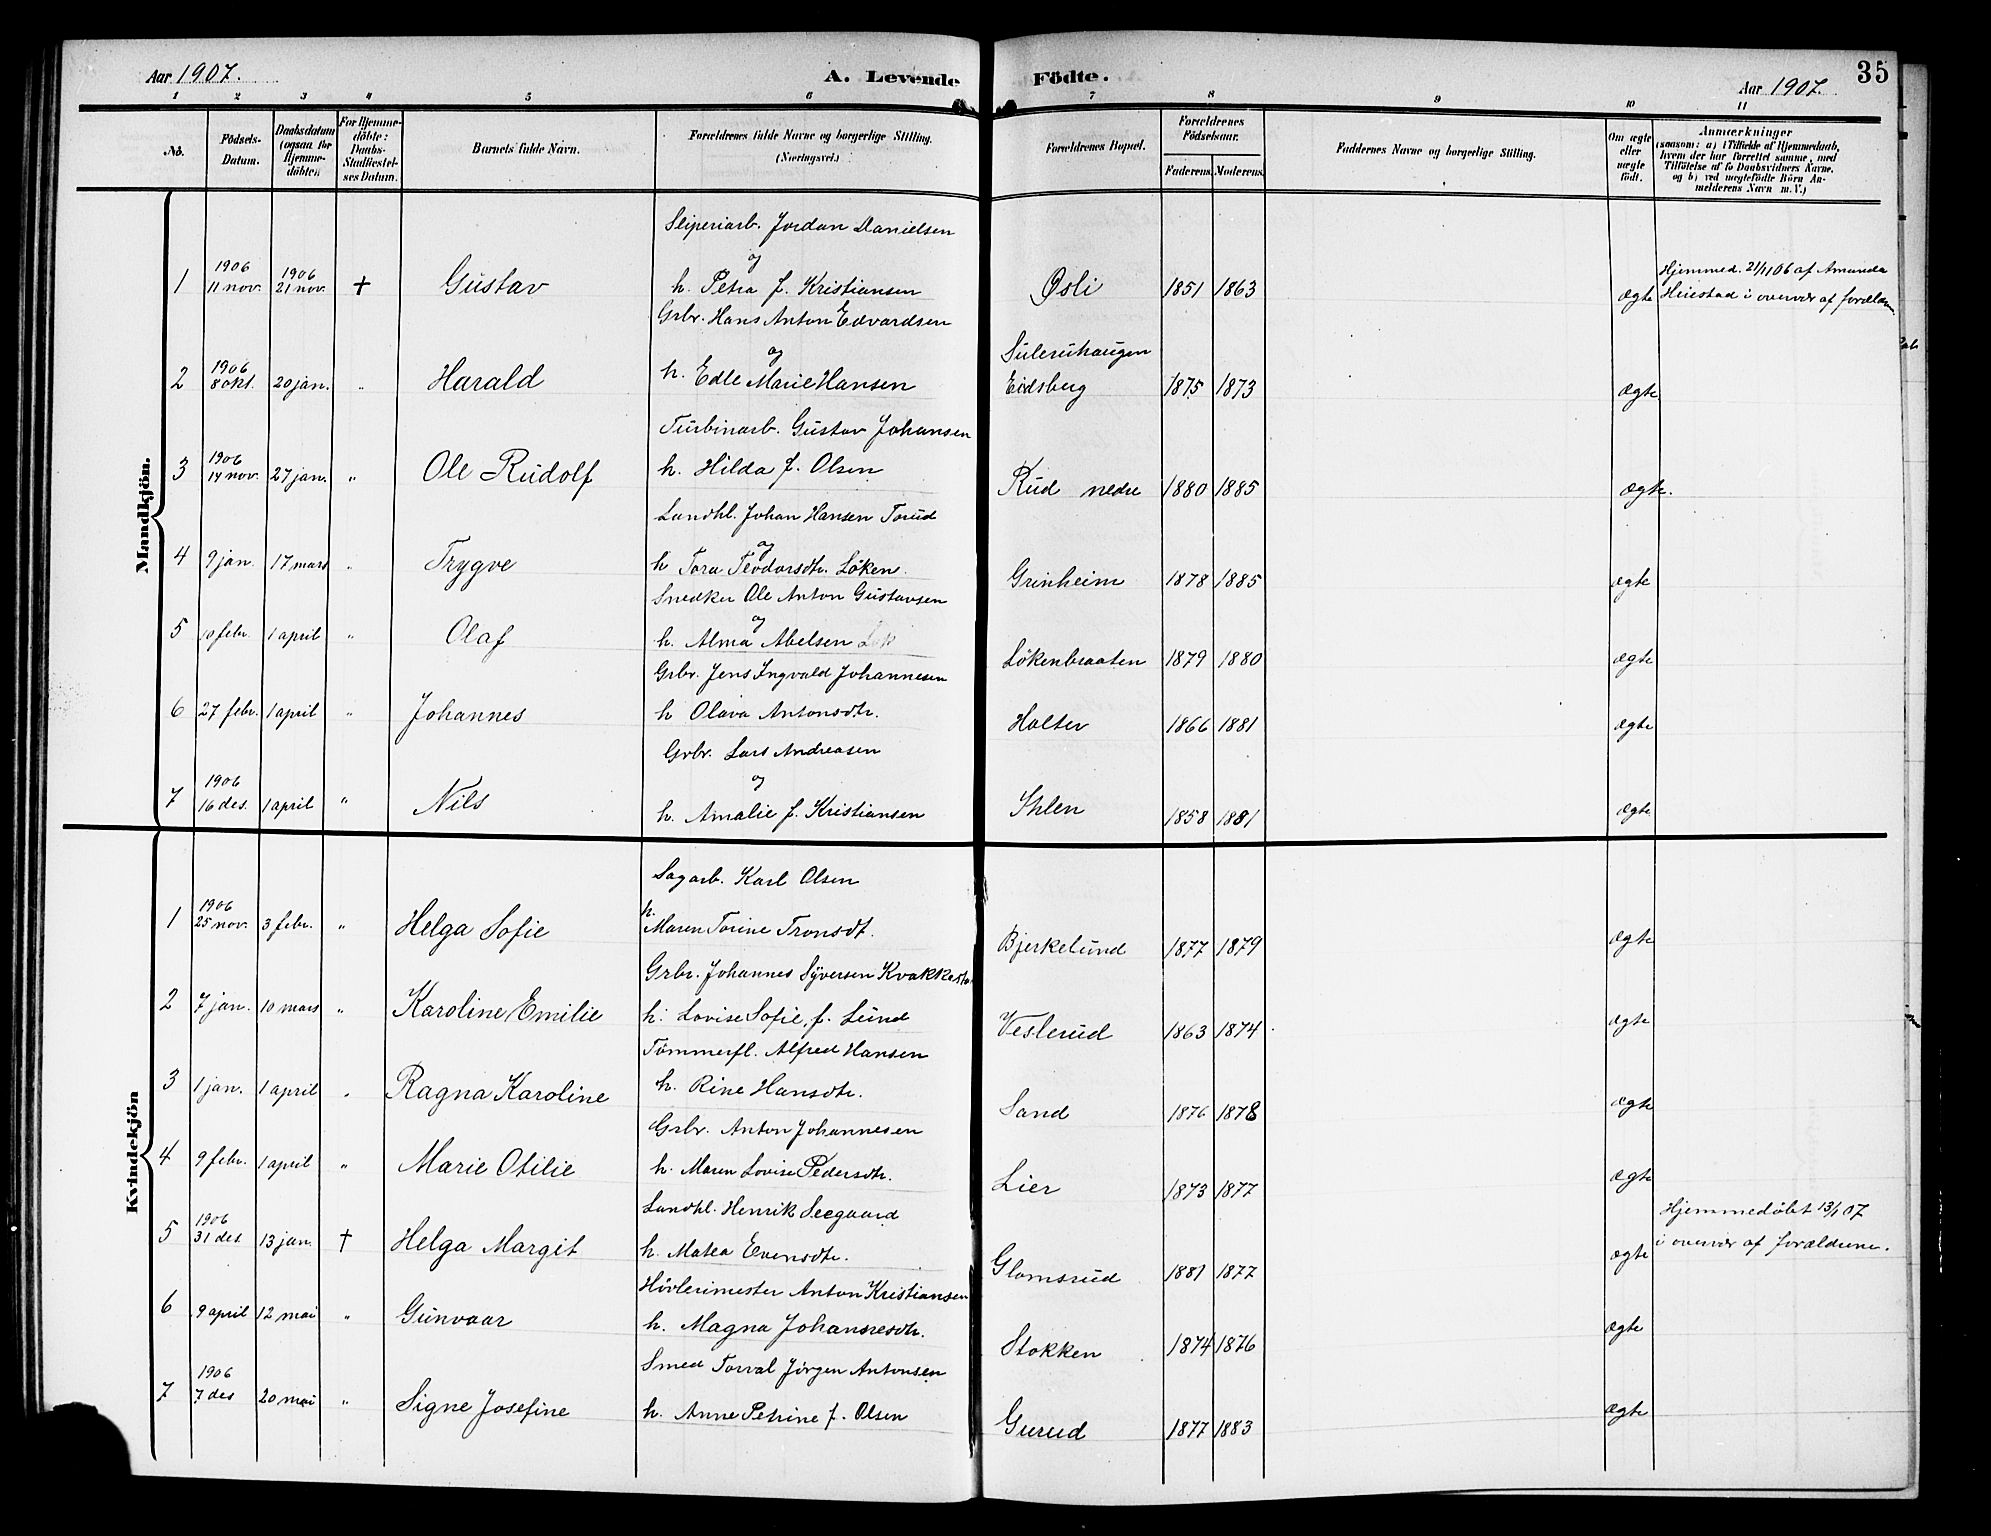 Aar 1907. A. Levende Födte. Aar 1907. 35
1 2 3 4 5 6 7 8 9 10 11
No. Födsels-Datum. Daabsdatum (ogsaa for Hjemme-döbte) For Hjemme-döbte: Daabs-Stadfæstel-ses Datum. Barnets fulde Navn. Forældrenes fulde Navne og borgerlige Stilling. (Næringsvei.) Forældrenes Bopæl. Forældrenes Födselsaar. Faderens. Moderens. Faddernes Navne og borgerlige Stilling. Om ægte eller uægte födt. Anmærkninger (saasom: a) i Tilfælde af Hjemmedaab, hvem der har forrettet samme, med Tilföielse af to Daabsvidners Navne, og b) ved uægtefödte Börn An-melderens Navn m. V.)
Mandkjön.
Sliperiarb. Jordan Danielsen
og
1 1906 11 nov. 1906 21 nov. † Gustav h. Petra f. Kristiansen Øsli 1851 1863 ægte Hjemmed. 21/11 06 af Amanda
Heiestad i overvær af forældrene
Grbr. Hans Anton Edvardsen
og
2 1906 8 okt. 20 jan. " Harald h. Edle Marie Hansen Suleruhaugen
Eidsberg 1875 1873 ægte
Turbinarb. Gustav Johansen
3 1906 14 nov. 27 jan. " Ole Rudolf h. Hilda f. Olsen Rud nedre 1880 1885 ægte.
Landhl. Johan Hansen Torud
og
4 9 jan. 17 mars " Trygve h Tora Teodorsdtr. Löken. Grinheim 1878 1885 ægte
Snedker Ole Anton Gustavsen
og
5 10 febr. 1 april " Olaf h. Alma Abelsen Lökenbraaten 1879 1880 ægte
Grbr. Jens Ingvald Johannesen
6 27 febr. 1 april " Johannes h Olava Antonsdtr. Holter 1866 1881 ægte
Grbr. Lars Andreasen
og
7 1906 16 des. 1 april " Nils h. Amalie f. Kristiansen Ihlen 1858 1881 ægte
Kvindekjön
Sagarb. Karl Olsen
h.
1 1906 25 nov. 3 febr. " Helga Sofie Maren Torine Tronsdt. Bjerkelund 1877 1879 ægte
Grbr. Johannes Syversen Kvakkestad
2 7 jan. 10 mars " Karoline Emilie h. Lovise Sofie, f. Lund Veslerud 1863 1874 ægte
Tömmerfl. Alfred Hansen
3 1 jan. 1 april " Ragna Karoline h. Rine Hansdtr. Sand 1876 1878 ægte
Grbr. Anton Johannesen
4 9 febr. 1 april " Marie Otilie h. Maren Lovise Pedersdtr. Lier 1873 1877 ægte
Landhl. Henrik Seegaard
5 1906 31 des 13 jan. † Helga Margit h. Matea Evensdtr. Glomsrud 1881 1877 ægte Hjemmedöbt 13/1 07
i overvær af forældrene.
Hövlerimester Anton Kristiansen
6 9 april 12 mai " Gunvaar h. Magna Johannesdtr. Stokken 1874 1876 ægte
Smed Torval Jörgen Antonsen
7 1906 7 des 20 mai " Signe Josefine h. Anne Petrine f. Olsen Gurud 1877 1883 ægte